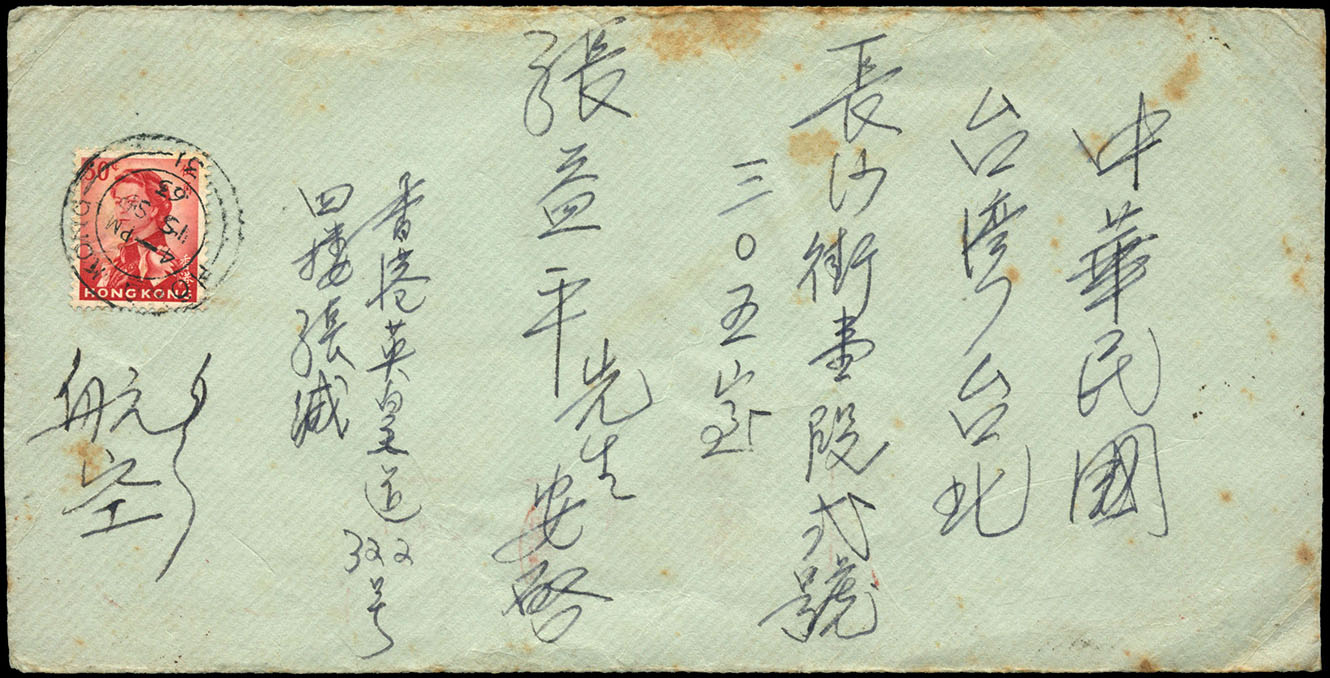 中華民國
台灣台北
長沙街壹段弍號
三〇五室
張益平先生安啓
香港英皇道322号
四樓張緘
航空
50c
HONG KONG
HONG KONG
4 - PM
15 SP
63